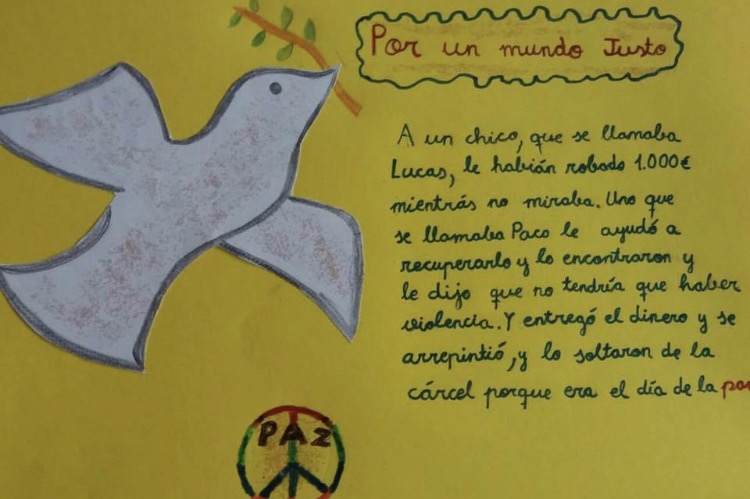 Por un mundo Justo
A un chico, que se llamaba
Lucas, le habián robado 1.000€
mientrás no miraba. Uno que
se llamaba Paco le ayudó a
recuperarlo y lo encontraron y
le dijo que no tendría que haber
violencia. Y entregó el dinero y se
arrepintió, y lo soltaron de la
cárcel porque era el día de la
PAZ